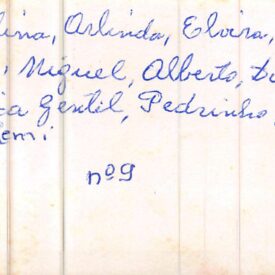 lina, Arlinda, Elvira,
, Miguel, Alberto, Do
ca Gentil, Pedrinho
emi
nº9